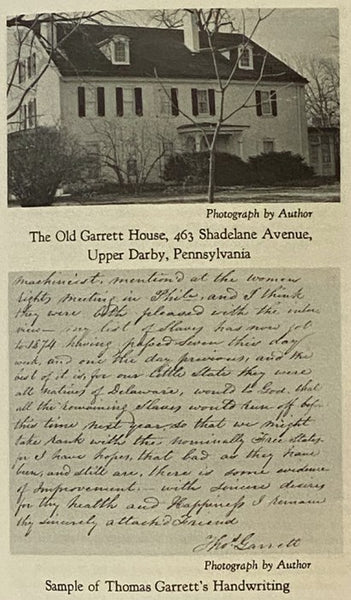 Photograph by Author
The Old Garrett House, 463 Shadelane Avenue,
Upper Darby, Pennsylvania
machinist, mention'd at the womens
rights meeting in Phila, and I think
they were both pleased with the inter
view — my list of Slaves has now got
to 1874 having passed seven this day
week, and one the day previous, and the
best of it is, for our little State they were
all natives of Delaware, would to God, that
all the remaining Slaves would run off before
this time next year, so that we might
take Rank with the nominally Free States
for I have hopes, that bad as they have
been, and still are, there is some evidence
of Improvement, — with sincere desires
for thy health and Happiness I remain
thy sincerely attach'd Friend
Thos Garrett
Photograph by Author
Sample of Thomas Garrett's Handwriting